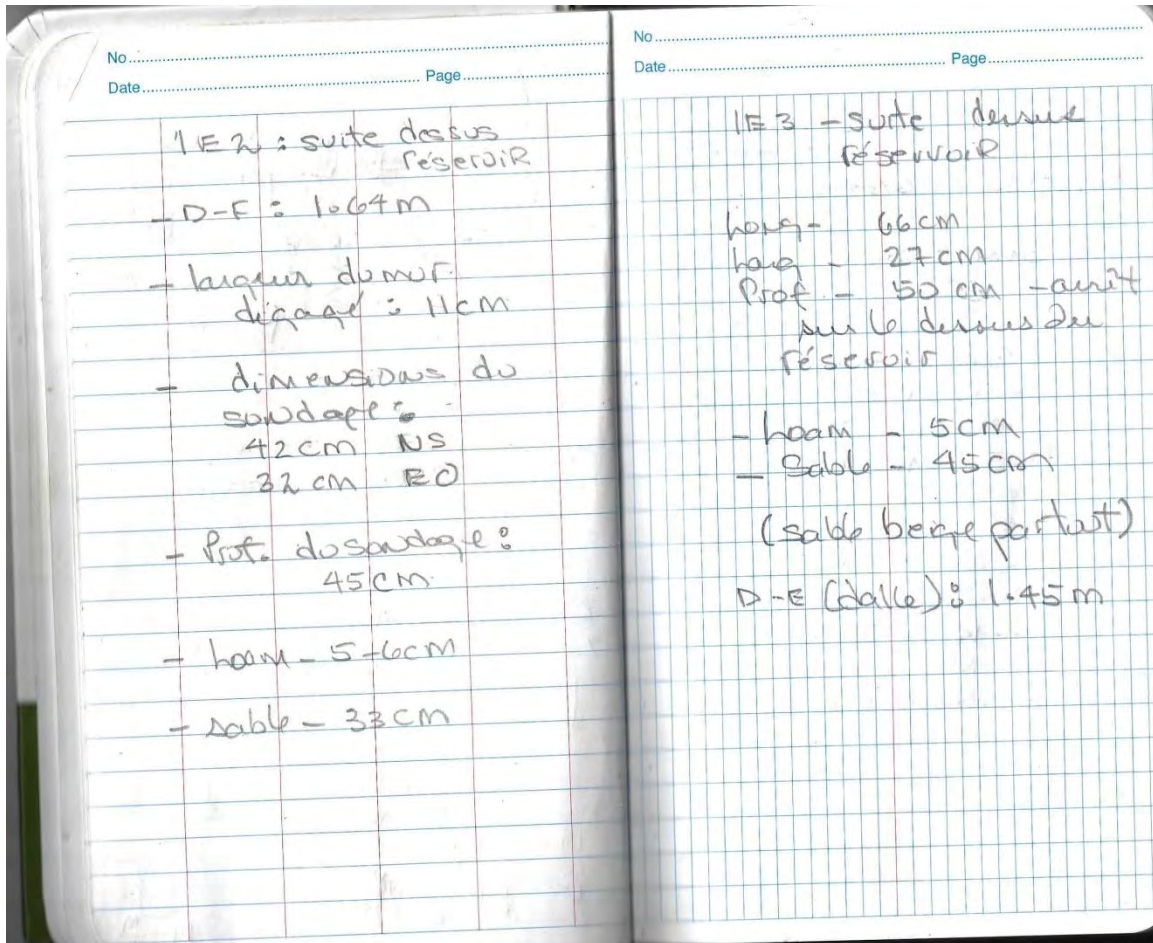 No
Date Page
1E2 : suite dessus
réservoiR
- D-E : 1.64m
- largeur du mur
dégagé : 11cm
- dimensions du
sondage :
42cm NS
32 cm EO
- Prof. du sondage :
45 cm
- Loam - 5-6cm
- sable - 33 cm
No
Date Page
1E3 - suite dessus
réservoiR
Long - 66 cm
Larg - 27cm
Prof - 50 cm - arrêt
sur le dessus du
réservoir
- Loam - 5cm
- Sable - 45 cm
(sable beige partout)
D-E (dalle) : 1.45m